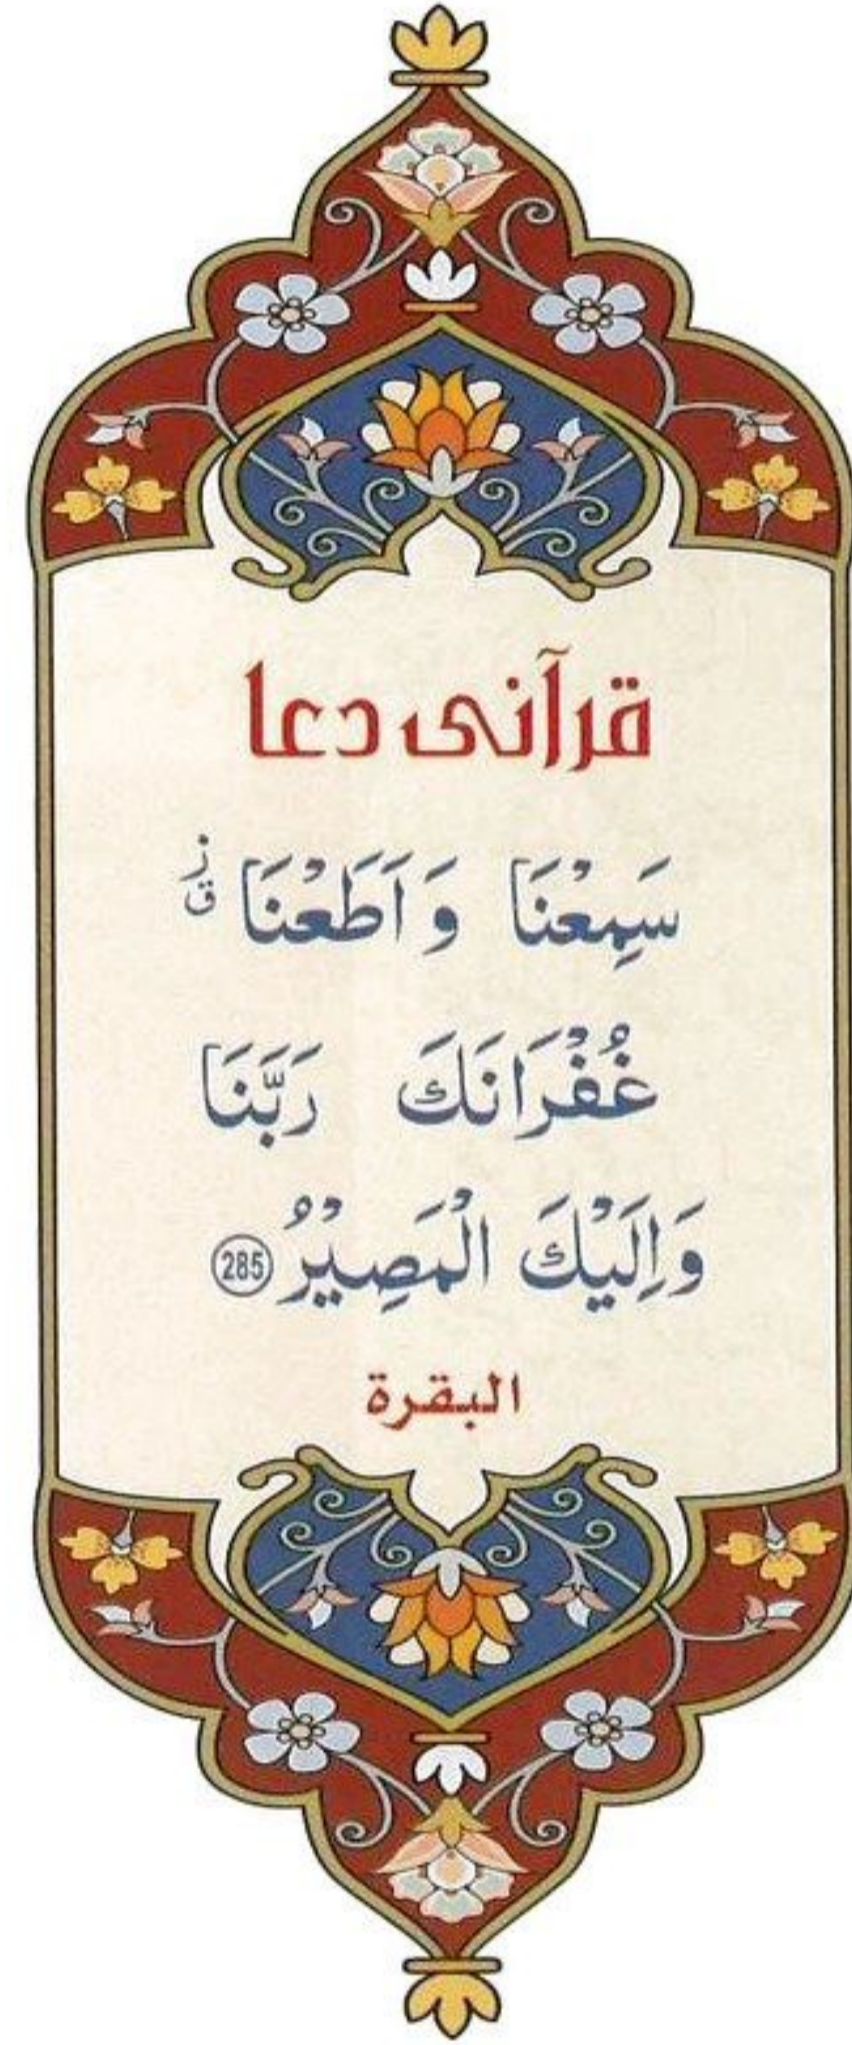 قرآنی دعا
سَمِعْنَا وَ اَطَعْنَا ق ز
غُفْرَانَكَ رَبَّنَا
وَ اِلَيْكَ الْمَصِيْرُ 285
البقرة